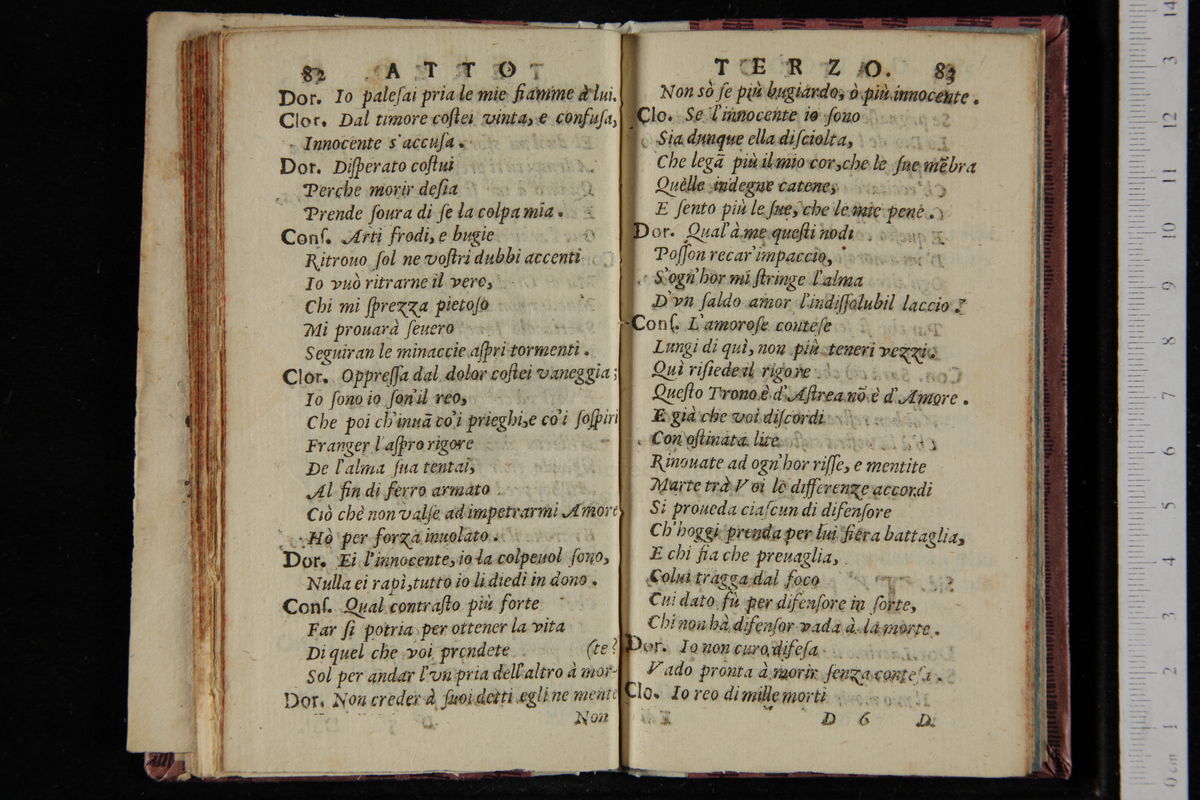 82 ATTO
Dor. Io paleſai pria le mie fiamme à lui.
Clor. Dal timore coſtei vinta, e confuſa,
Innocente s'accuſa.
Dor. Diſperato coſtui
Perche morir deſia
Prende ſoura di ſe la colpa mia.
Conſ. Arti frodi, e bugie
Ritrouo ſol ne voſtri dubbi accenti
Io vuò ritrarne il vero,
Chi mi ſprezza pietoſo
Mi prouarà ſeuero
Seguiran le minaccie aſpri tormenti.
Clor. Oppreſſa dal dolor coſtei vaneggia;
Io ſono io ſon il reo,
Che poi ch'inuā co'i prieghi, e co'i ſoſpiri
Franger l'aſpro rigore
De l'alma ſua tentai,
Al fin di ferro armato
Ciò chè non valſe ad impetrarmi Amore
Hò per forza inuolato.
Dor. Ei l'innocente, io la colpeuol ſono,
Nulla ei rapì, tutto io li diedi in dono.
Conſ. Qual contraſto più forte
Far ſi potria per ottener la vita
Di quel che voi prendete (te?
Sol per andar l'vn pria dell'altro à mor-
Dor. Non creder à ſuoi detti egli ne mente
Non
TERZO. 83
Non sò ſe più bugiardo, ò più innocente.
Clo. Se l'innocente io ſono
Sia dunque ella diſciolta,
Che legā più il mio cor, che le ſue mēbra
Quelle indegne catene,
E ſento più le ſue, che le mie pene.
Dor. Qual'à me queſti nodi
Poſſon recar'impaccio,
S'ogn'hor mi ſtringe l'alma
D'vn ſaldo amor l'indiſſolubil laccio?
Conſ. L'amoroſe conteſe
Lungi di quì, non più teneri vezzi.
Quì riſiede il rigore
Queſto Trono è d'Aſtrea nō è d'Amore.
E già che voi diſcordi
Con oſtinata lite
Rinouate ad ogn'hor riſſe, e mentite
Marte trà Voi le differenze accordi
Si proueda ciaſcun di difenſore
Ch'hoggi prenda per lui fiera battaglia,
E chi fia che preuaglia,
Colui tragga dal foco
Cui dato fù per difenſore in ſorte,
Chi non hà difenſor vada à la morte.
Dor. Io non curo difeſa
Vado pronta à morir ſenza conteſa.
Clo. Io reo di mille morti
D 6 Di